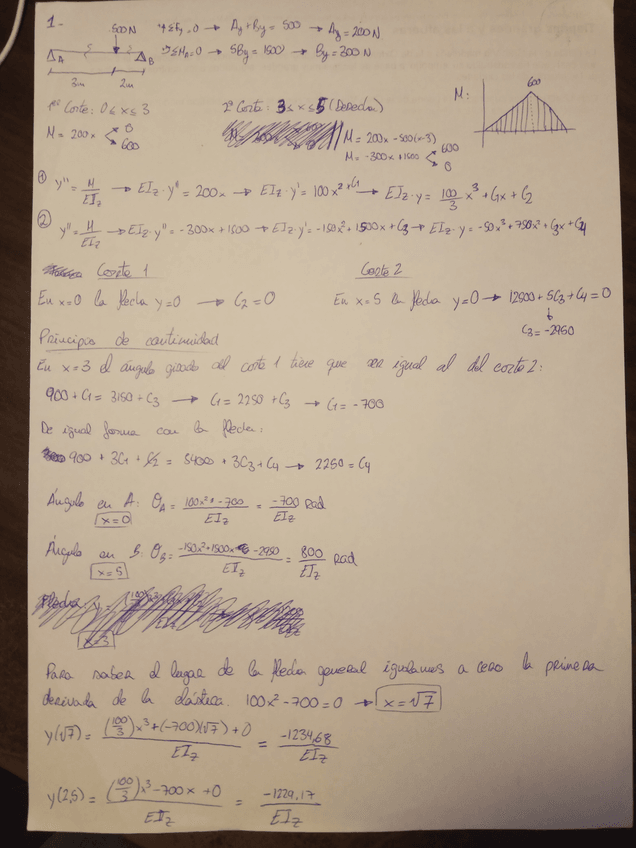 1.-
500N
ΣFy=0 → Ay + By = 500 → Ay = 200N
ΣMA=0 → 5By = 1500 → By = 300N
A 5 2 B
3m 2m
M: 600
1er Corte: 0 ≤ x ≤ 3
2º Corte: 3 ≤ x ≤ 5 (Derecha)
M = 200x 0 600
M = 200x - 500(x-3)
M = -300x + 1500 600 0
① y'' = M/EIz → EIz·y'' = 200x → EIz·y' = 100x² + C1 → EIz·y = 100/3 x³ + C1x + C2
② y'' = M/EIz → EIz·y'' = -300x + 1500 → EIz·y' = -150x² + 1500x + C3 → EIz·y = -50x³ + 750x² + C3x + C4
Corte 1
Corte 2
En x=0 la flecha y=0 → C2 = 0
En x=5 la flecha y=0 → 12500 + 5C3 + C4 = 0
C3 = -2950
Principio de continuidad
En x=3 el ángulo girado del corte 1 tiene que ser igual al del corte 2:
900 + C1 = 3150 + C3 → C1 = 2250 + C3 → C1 = -700
De igual forma con la flecha:
900 + 3C1 + C2 = 5400 + 3C3 + C4 → 2250 = C4
Ángulo en A: θA = 100x² - 700/EIz = -700/EIz rad
x=0
Ángulo en B: θB = -150x² + 1500x - 2950/EIz = 800/EIz rad
x=5
x=3
Para saber el lugar de la flecha general igualamos a cero la primera
derivada de la elástica. 100x² - 700 = 0 → x = √7
y(√7) = (100/3)x³ + (-700)(√7) + 0/EIz = -1234,68/EIz
y(2,5) = (100/3)x³ - 700x + 0/EIz = -1229,17/EIz